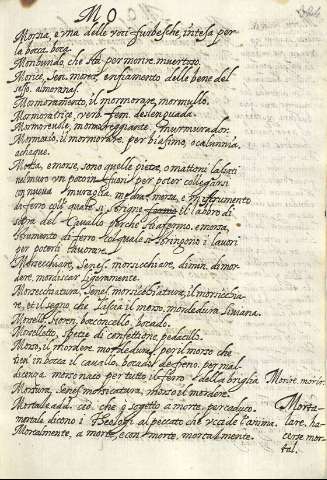 M O
Morsia, è vna delle voci furbesche, intesa per
la bocca. boca.
Moribundo, che stà per morire. muertozo.
Morice, Sen. morai, enfiamento delle vene del
sesso. almoranas.
Mormoramento, il mormorare. mormullo.
Mormoratrice, verb. fem. deslenguada.
Mormoreuole, mormoreggiante. murmurador.
Mormorio, il mormorare, per biasimo, ò calunnia.
achaque.
Morsa, e morse, sono quelle pietre, ò mattoni lasciati
nel muro vn poco in fuori per poter collegarsi
con nuoua muraglia. e instrumento
di ferro col quale si stringe il labro di
sopra del Cauallo perche stia fermo. e morsa,
strumento di ferro col quale si stringono i lauori
per poterli lauorare.
Morsecchiare, Senes. morsicchiare, dimin. di mor-
dere. mordiscar ligeramente.
Morsecchiatura, Senes. morsicchiatura, il morsicchia-
re, et il segno che lascia il morso. mordedura liuiana.
Morselli, bocconcello. bocado.
Morselletto, spetie di confettione. pedacillo.
Morso, il mordere. mordedura. per il morso che
tien' in bocca il cauallo. bocado de freno. per mal
dicenza. per tutto il ferro della briglia
Morsura, Senes. morsicatura, morso, il mordere.
Mortale add. ciò che è sogetto a morte. perecedero.
mortale dicono i Theologi al peccato che vccide l'anima.
Mortalmente, a morte, e con morte. mortalmente.
Morire, morir
Morta-
lare, ha-
cerse mor-
tal.